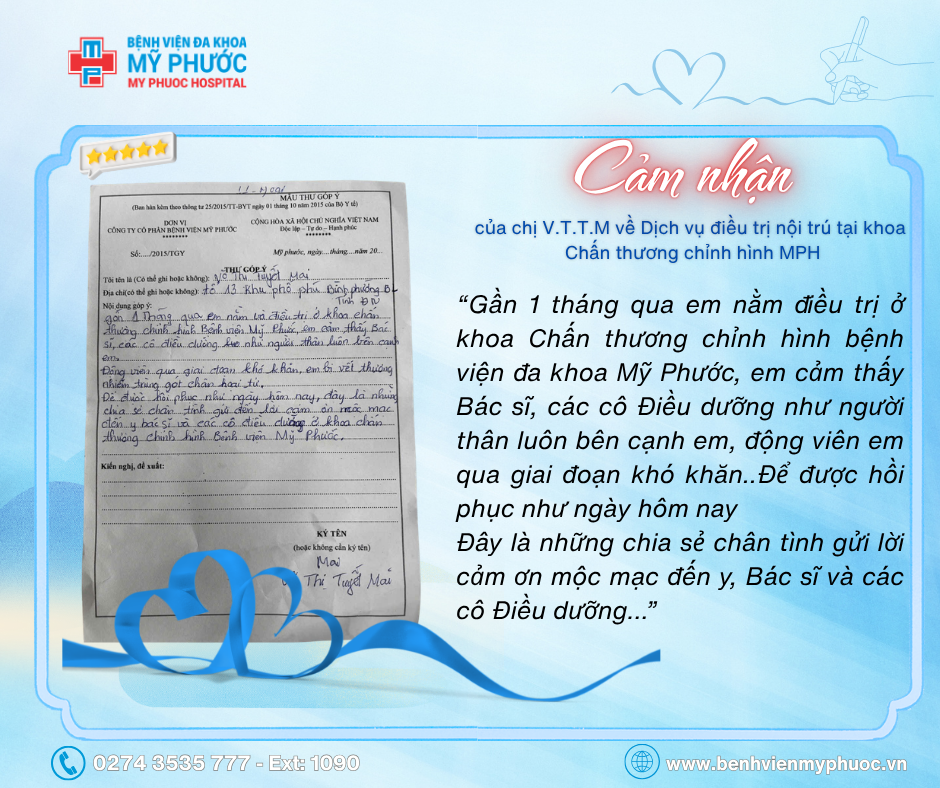 BỆNH VIỆN ĐA KHOA
MỸ PHƯỚC
MY PHUOC HOSPITAL
MPH
Cảm nhận
của chị V.T.T.M về Dịch vụ điều trị nội trú tại khoa
Chấn thương chỉnh hình MPH
MẪU THƯ GÓP Ý
(Ban hành kèm theo thông tư 25/2015/TT-BYT ngày 01 tháng 10 năm 2015 của Bộ Y tế)
ĐƠN VỊ
CÔNG TY CỔ PHẦN BỆNH VIỆN MỸ PHƯỚC
CỘNG HÒA XÃ HỘI CHỦ NGHĨA VIỆT NAM
Độc lập – Tự do – Hạnh phúc
Số:..../2015/TGY
Mỹ phước, ngày.... tháng.... năm 20...
THƯ GÓP Ý
Tôi tên là (Có thể ghi hoặc không): Võ Thị Tuyết Mai
Địa chỉ(có thể ghi hoặc không): tổ 13 khu phố phú
Nội dung góp ý:
gần 1 tháng qua em nằm và điều trị ở khoa chấn
thương chỉnh hình Bệnh viện Mỹ Phước, em cảm thấy Bác
sĩ, các cô điều dưỡng như người thân luôn bên cạnh
em.
Động viên qua giai đoạn khó khăn, em bị vết thương
nhiễm trùng gót chân
Để được hồi phục như ngày hôm nay, đây là những
chia sẻ chân tình gửi đến lời cảm ơn mộc mạc
đến y bác sĩ và các cô điều dưỡng ở khoa chấn
thương chỉnh hình Bệnh viện Mỹ Phước.
Kiến nghị, đề xuất:
KÝ TÊN
(hoặc không cần ký tên)
Mai
Thị Tuyết Mai
“Gần 1 tháng qua em nằm điều trị ở
khoa Chấn thương chỉnh hình bệnh
viện đa khoa Mỹ Phước, em cảm thấy
Bác sĩ, các cô Điều dưỡng như người
thân luôn bên cạnh em, động viên em
qua giai đoạn khó khăn..Để được hồi
phục như ngày hôm nay
Đây là những chia sẻ chân tình gửi lời
cảm ơn mộc mạc đến y, Bác sĩ và các
cô Điều dưỡng...”
0274 3535 777 - Ext: 1090
www.benhvienmyphuoc.vn